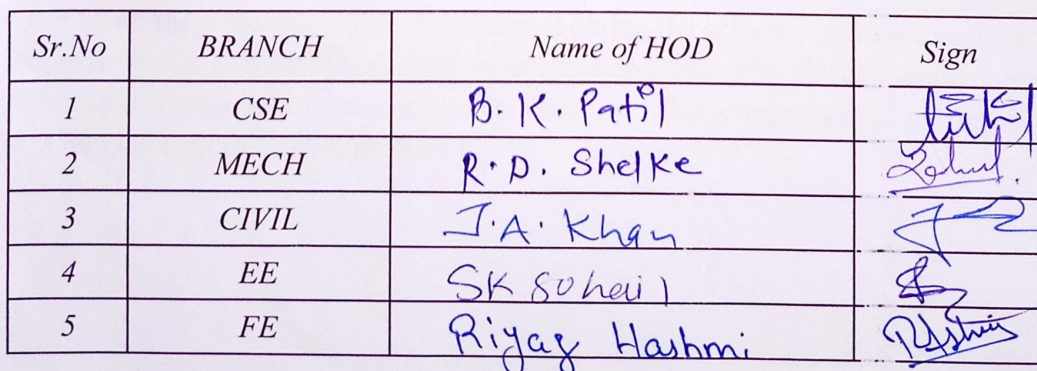 Sr.No BRANCH Name of HOD Sign
1 CSE B.K.Patil
2 MECH R.D. Shelke
3 CIVIL J.A. Khan
4 EE SK Sohail
5 FE Riyaz Hashmi